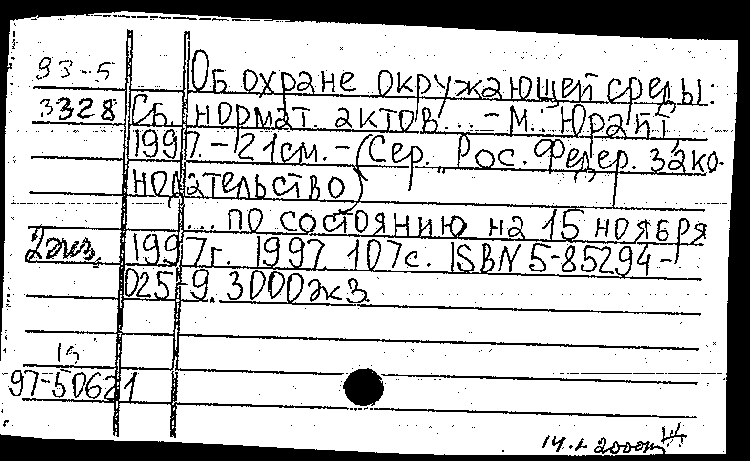 93-5 Об охране окружающей среды:
3328 Сб. нормат. актов... - М.: Юрайт,
1997. - 21см. - (Сер. „Рос. Федер. зако-
нодательство)
... по состоянию на 15 ноября
2экз. 1997г. 1997. 107с. ISBN 5-85294-
025-9. 3000экз.
15
97-50621